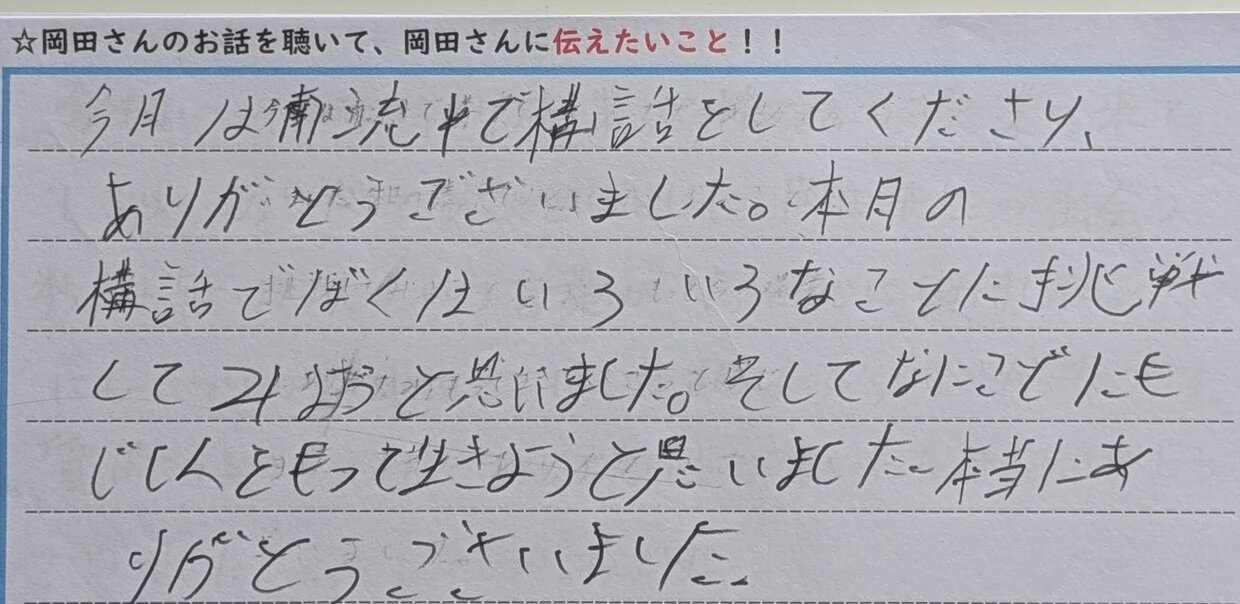 ☆岡田さんのお話を聴いて、岡田さんに伝えたいこと！！
今月は南流中で構話をしてくださり、
ありがとうございました。本月の
構話でぼくはいろいろなことに挑戦
してみようと思いました。そしてなにごどにも
じしんをもって生きようと思いました。本当にあ
りがとうございました。